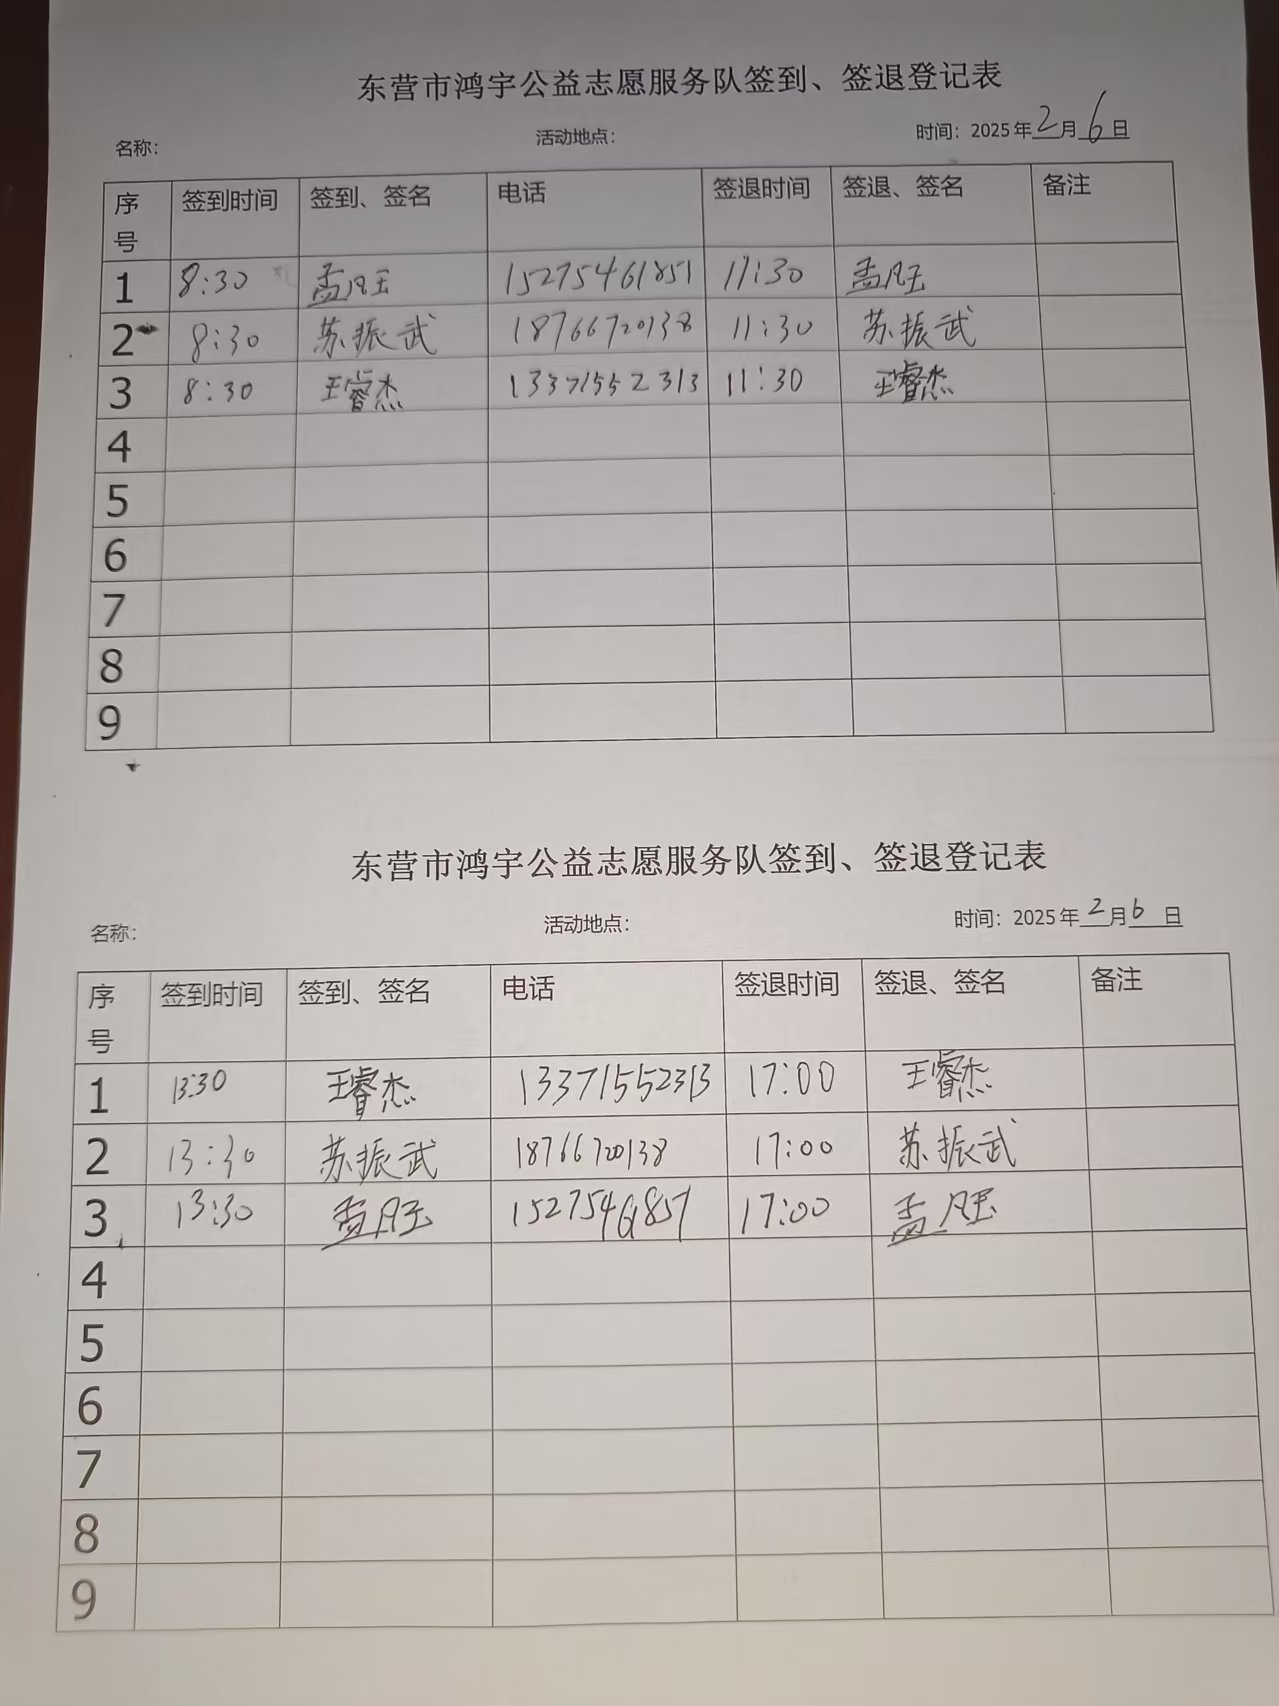 东营市鸿宇公益志愿服务队签到、签退登记表
名称： 活动地点： 时间：2025年2月6日
序号 签到时间 签到、签名 电话 签退时间 签退、签名 备注
1 8:30 孟凡玉 15275461851 11:30 孟凡玉
2 8:30 苏振武 18766720138 11:30 苏振武
3 8:30 王睿杰 13371552313 11:30 王睿杰
4
5
6
7
8
9
东营市鸿宇公益志愿服务队签到、签退登记表
名称： 活动地点： 时间：2025年2月6日
序号 签到时间 签到、签名 电话 签退时间 签退、签名 备注
1 13:30 王睿杰 13371552313 17:00 王睿杰
2 13:30 苏振武 18766720138 17:00 苏振武
3 13:30 孟凡玉 15275461851 17:00 孟凡玉
4
5
6
7
8
9